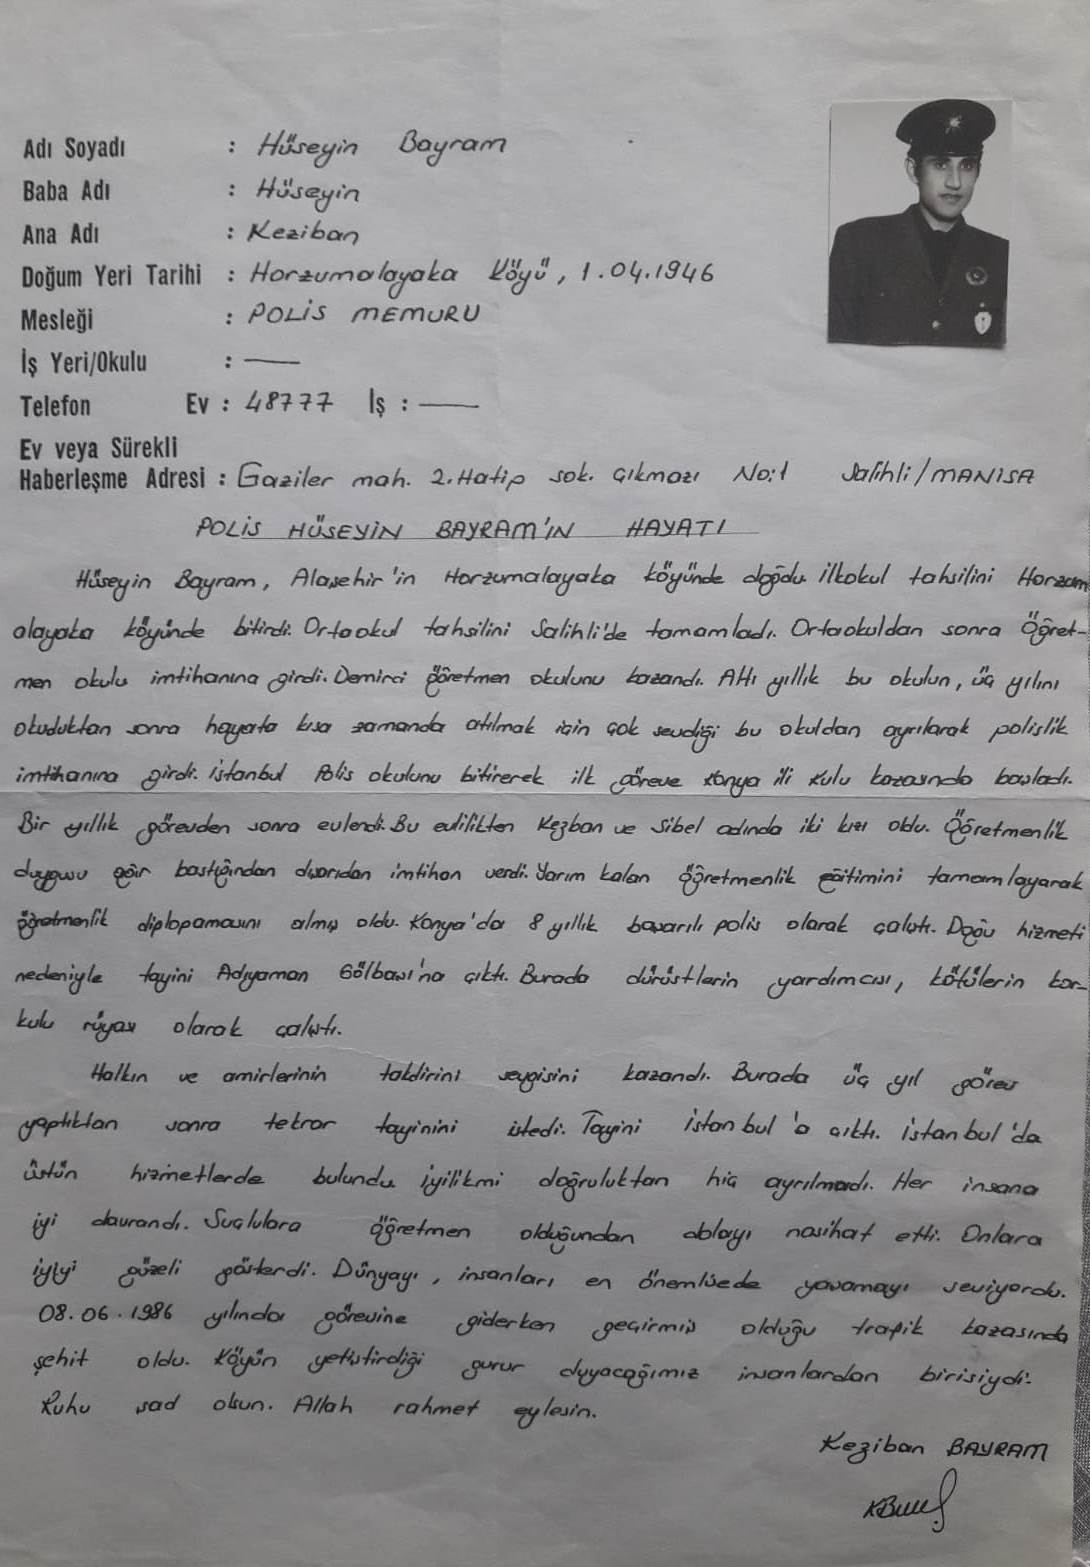 Adı Soyadı : Hüseyin Bayram
Baba Adı : Hüseyin
Ana Adı : Keziban
Doğum Yeri Tarihi : Horzumalayaka Köyü, 1.04.1946
Mesleği : POLİS MEMURU
İş Yeri/Okulu : —
Telefon Ev : 48777 İş : —
Ev veya Sürekli
Haberleşme Adresi : Gaziler mah. 2. Hatip sok. Çıkmazı No:1 Salihli/MANİSA
POLİS HÜSEYİN BAYRAM'IN HAYATI
Hüseyin Bayram, Alaşehir'in Horzumalayaka köyünde doğdu. İlkokul tahsilini Horzum
alayaka köyünde bitirdi. Ortaokul tahsilini Salihli'de tamamladı. Ortaokuldan sonra Öğret-
men okulu imtihanına girdi. Demirci öğretmen okulunu kazandı. Altı yıllık bu okulun, üç yılını
okuduktan sonra hayata kısa zamanda atılmak için çok sevdiği bu okuldan ayrılarak polislik
imtihanına girdi. İstanbul Polis okulunu bitirerek ilk göreve Konya ili Kulu kazasında başladı.
Bir yıllık görevden sonra evlendi. Bu evlilikten Kezban ve Sibel adında iki kızı oldu. Öğretmenlik
duygusu ağır bastığından dışarıdan imtihan verdi. Yarım kalan öğretmenlik eğitimini tamamlayarak
öğretmenlik diplopamasını almış oldu. Konya'da 8 yıllık başarılı polis olarak çalıştı. Doğu hizmeti
nedeniyle tayini Adıyaman Gölbaşı'na çıktı. Burada dürüstlerin yardımcısı, kötülerin kor-
kulu rüyası olarak çalıştı.
Halkın ve amirlerinin takdirini sevgisini kazandı. Burada üç yıl görev
yaptıktan sonra tekrar tayinini istedi. Tayini İstanbul'a çıktı. İstanbul'da
üstün hizmetlerde bulundu. İyilikmi doğruluktan hiç ayrılmadı. Her insana
iyi davrandı. Suçlulara öğretmen olduğundan dolayı nasihat etti. Onlara
iyiyi güzeli gösterdi. Dünyayı, insanları en yaşamayı seviyordu.
08.06.1986 yılında görevine giderken geçirmiş olduğu trafik kazasında
şehit oldu. Köyün yetiştirdiği gurur duyacağımız insanlardan birisiydi.
Ruhu şad olsun. Allah rahmet eylesin.
Keziban BAYRAM